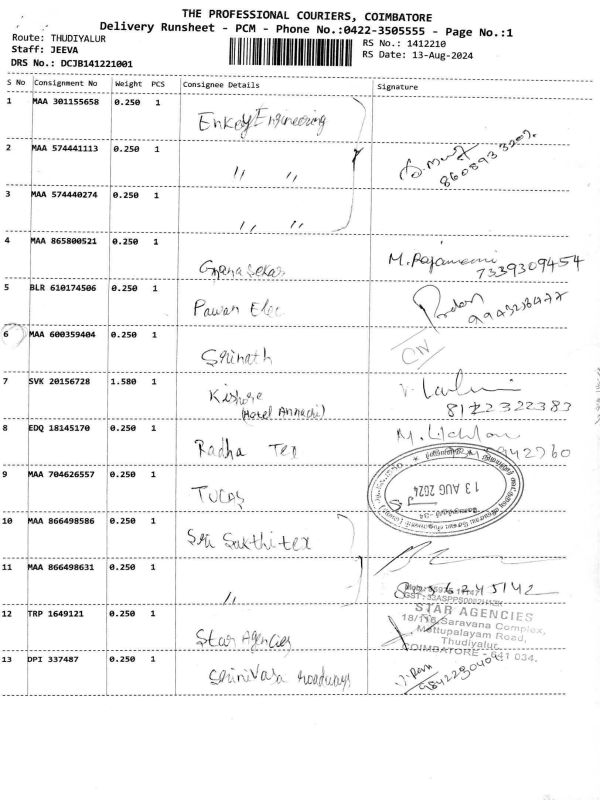 THE PROFESSIONAL COURIERS, COIMBATORE
Delivery Runsheet - PCM - Phone No.:0422-3505555 - Page No.:1
Route: THUDIYALUR
Staff: JEEVA
DRS No.: DCJB141221001
RS No.: 1412210
RS Date: 13-Aug-2024
S No Consignment No Weight PCS Consignee Details Signature
1 MAA 301155658 0.250 1 Enkay Engineering
2 MAA 574441113 0.250 1 〃 〃
3 MAA 574440274 0.250 1 〃 〃
4 MAA 865800521 0.250 1 Gnana Sekar M. Rajamani
7339309454
5 BLR 610174506 0.250 1 Pawan Elec
6 MAA 600359404 0.250 1 Srinath
7 SVK 20156728 1.580 1 Kishore
(Hotel Annachi)
8122322383
8 EDQ 18145170 0.250 1 Radha Tex
9 MAA 704626557 0.250 1 Tucas
13 AUG 2024
10 MAA 866498586 0.250 1 Sri Sakthi tex
11 MAA 866498631 0.250 1 〃
12 TRP 1649121 0.250 1 Star Agencies
STAR AGENCIES
Saravana Complex,
Mettupalayam Road,
Thudiyalur,
COIMBATORE - 641 034.
13 DPI 337487 0.250 1 Srinivasa Roadways